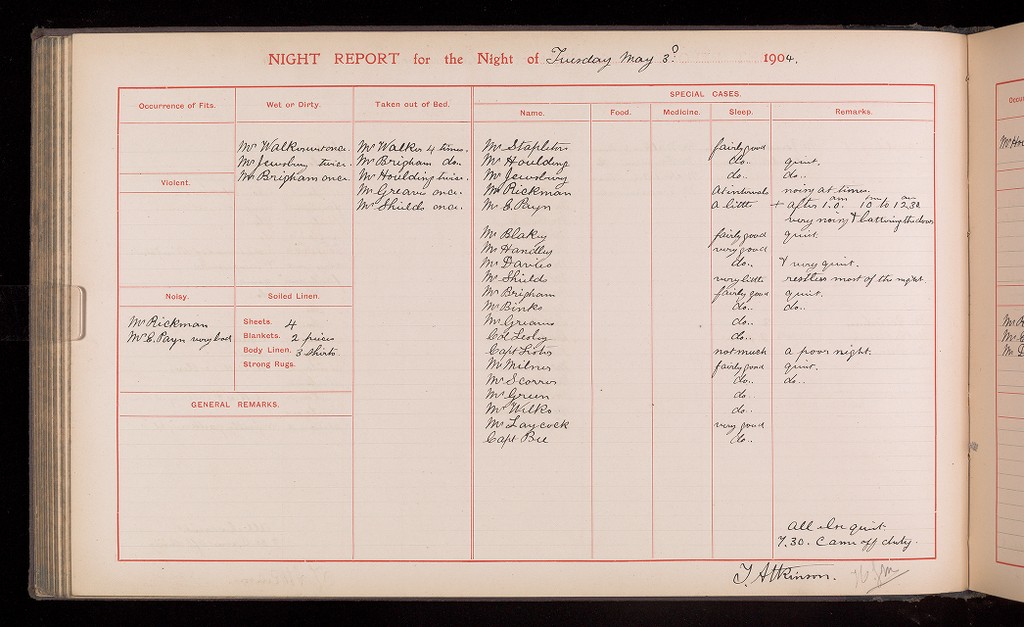 NIGHT REPORT for the Night of Tuesday May 3º 1904.
Occurrence of Fits.
Wet or Dirty.
Taken out of Bed.
SPECIAL CASES.
Name. Food. Medicine. Sleep. Remarks.
Mr Walker wet once.
Mr Jewsbury twice.
Mr Brigham once
Mr Walker 4 times.
Mr Brigham do..
Mr Houlding twice.
Mr Greaves once.
Mr Shields once.
Violent.
Noisy.
Mr Rickman
Mr E. Payn very bad
Soiled Linen.
Sheets. 4
Blankets. 2 pieces
Body Linen. 3 Shirts.
Strong Rugs.
GENERAL REMARKS.
Mr Stapleton fairly good
Mr Houlding do.. quiet.
Mr Jewsbury do.. do..
Mr Rickman at intervals noisy at times.
Mr E. Payn a little + after 1.0. am 10 pm to 12.30 am
very noisy & battering the door
Mr Blakey fairly good quiet.
Mr Handley very good
Mr Davies do.. & very quiet.
Mr Shields very little restless most of the night.
Mr Brigham fairly good quiet.
Mr Binks do.. do..
Mr Greaves do..
Col Lesley do..
Capt Lister not much a poor night.
Mr Milner fairly good quiet.
Mr Scorer do.. do..
Mr Green do..
Mr Wilks do..
Mr Laycock very good
Capt Bee do..
All else quiet.
7.30. Came off duty.
T. Atkinson.